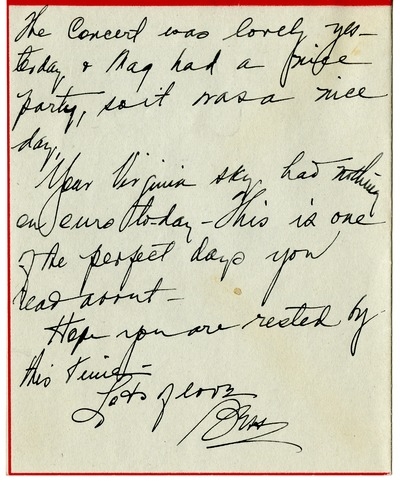 The Concert was lovely yes-
terday, & Mag had a nice
party, so it was a nice
day,
Your Virginia sky had nothing
on ours today - This is one
of the perfect days you
read about -
Hope you are rested by
this time -
Lots of love
Bess